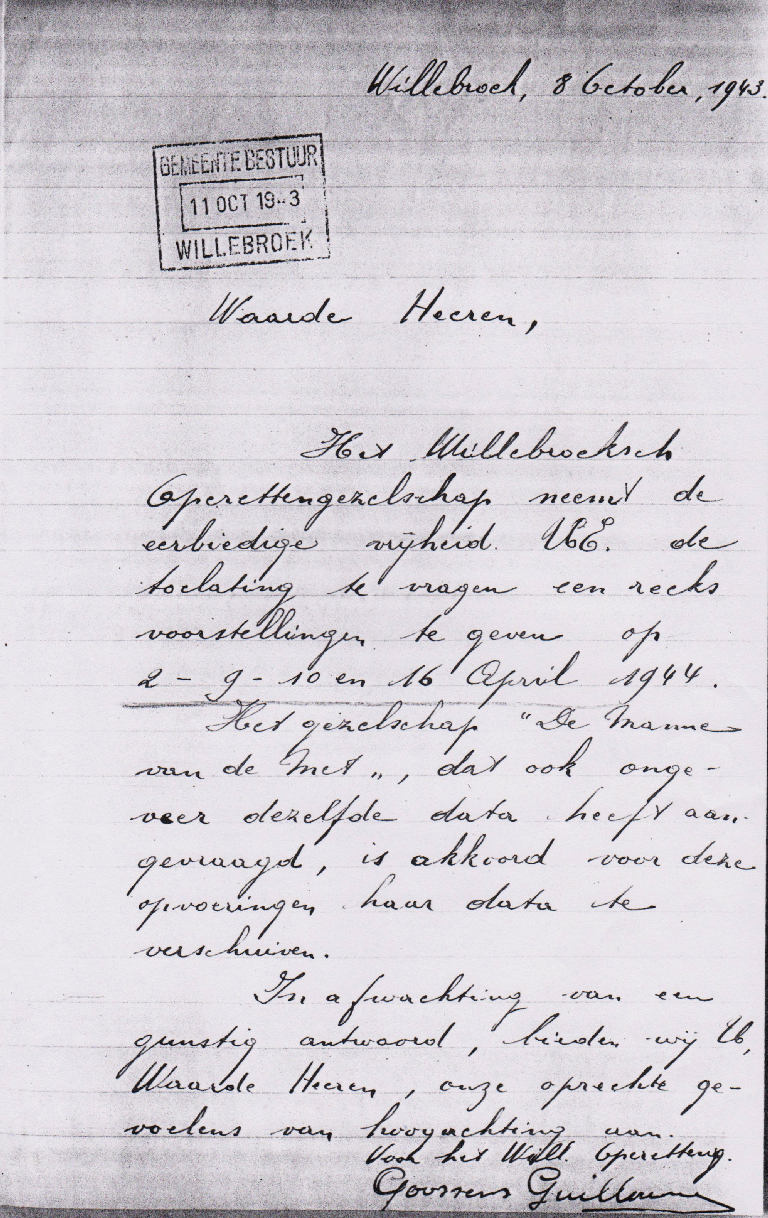 Willebroek, 8 October, 1943.
GEMEENTE BESTUUR
11 OCT 19-3
WILLEBROEK
Waarde Heeren,
Het Willebroeksch
Operettengezelschap neemt de
eerbiedige vrijheid UE. de
toelating te vragen een reeks
voorstellingen te geven op
2 - 9 - 10 en 16 April 1944.
Het gezelschap "De Manne
van de Met", dat ook onge-
veer dezelfde data heeft aan-
gevraagd, is akkoord voor deze
opvoeringen haar data te
verschuiven.
In afwachting van een
gunstig antwoord, bieden wij U,
Waarde Heeren, onze oprechte ge-
voelens van hoogachting aan.
Voor het Will. Operetteng.
Goossens Guillaume